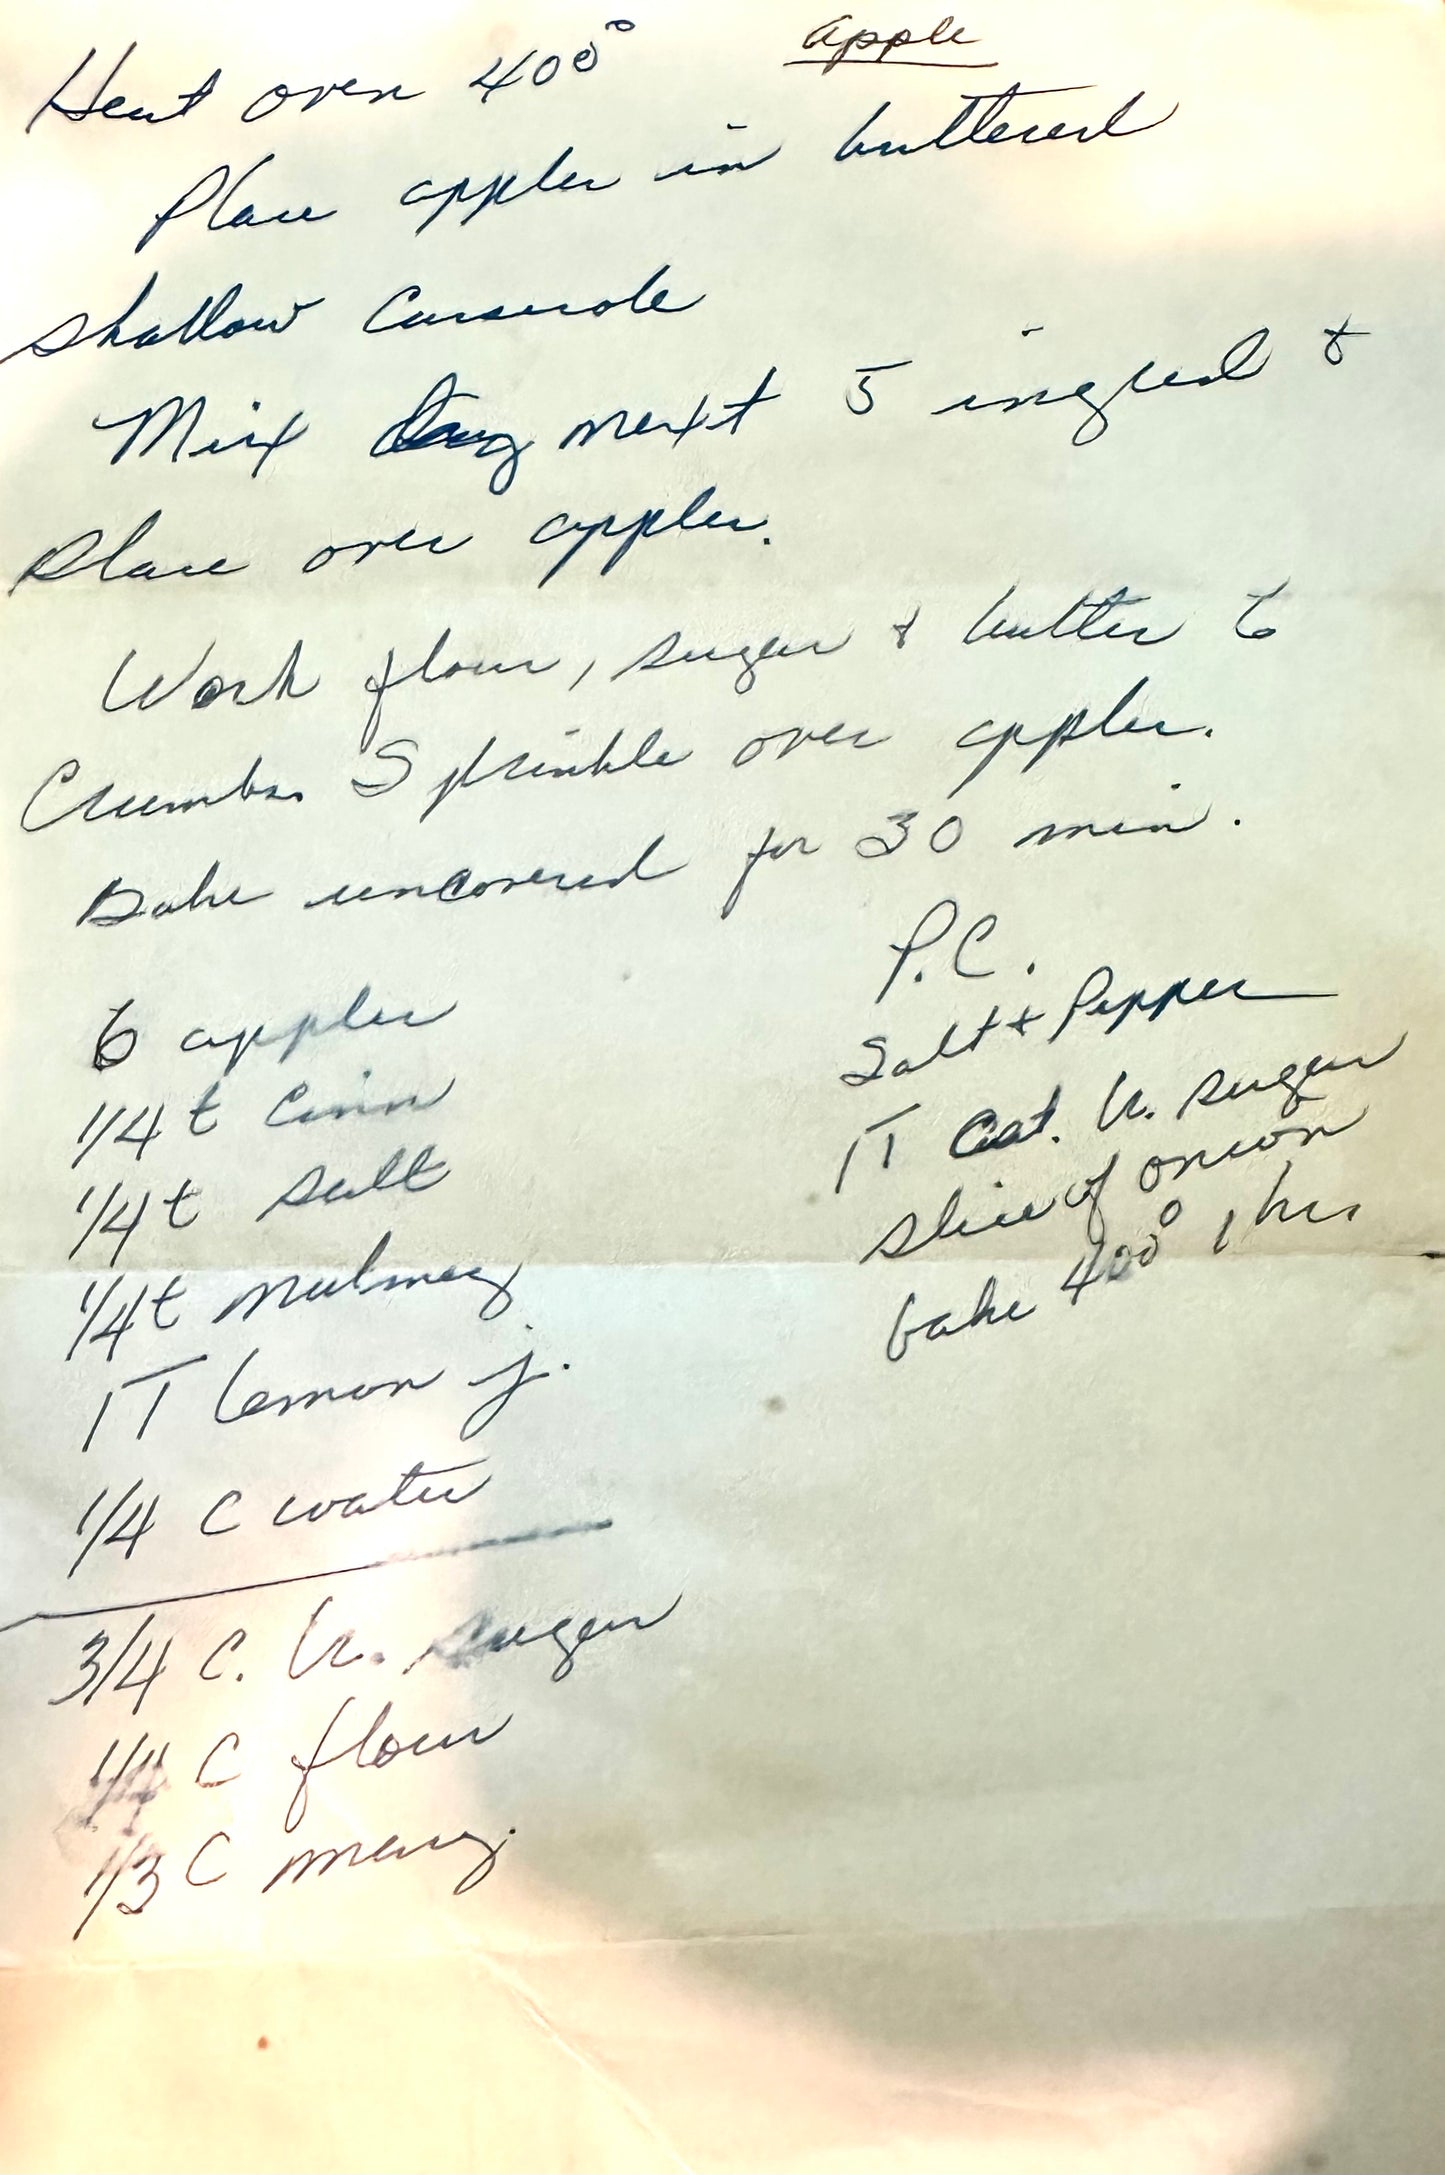 apple
Heat oven 400°
Place apples in buttered
shallow Casserole
Mix next 5 ingred &
Place over apples.
Work flour, sugar & butter to
Crumbs. Sprinkle over apples.
Bake uncovered for 30 min.
6 apples
1/4 t Cinn
1/4 t salt
1/4 t nutmeg
1T lemon j.
1/4 C water
3/4 C. br. sugar
1/4 C flour
1/3 C marg.
P.C.
Salt & Pepper
1T Cat. br. sugar
slice of onion
bake 400° 1 hr